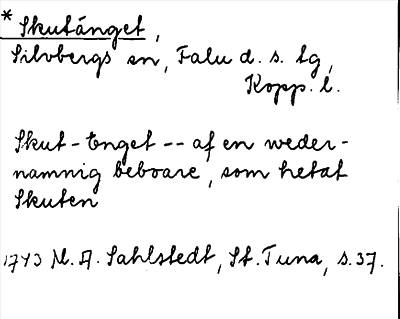 * Skutänget,
Silvbergs sn, Falu d. s. tg,
Kopp. l.
Skut-Enget -- af en weder-
namnig beboare, som hetat
Skuten
1743 M. A. Sahlstedt, St. Tuna, s. 37.